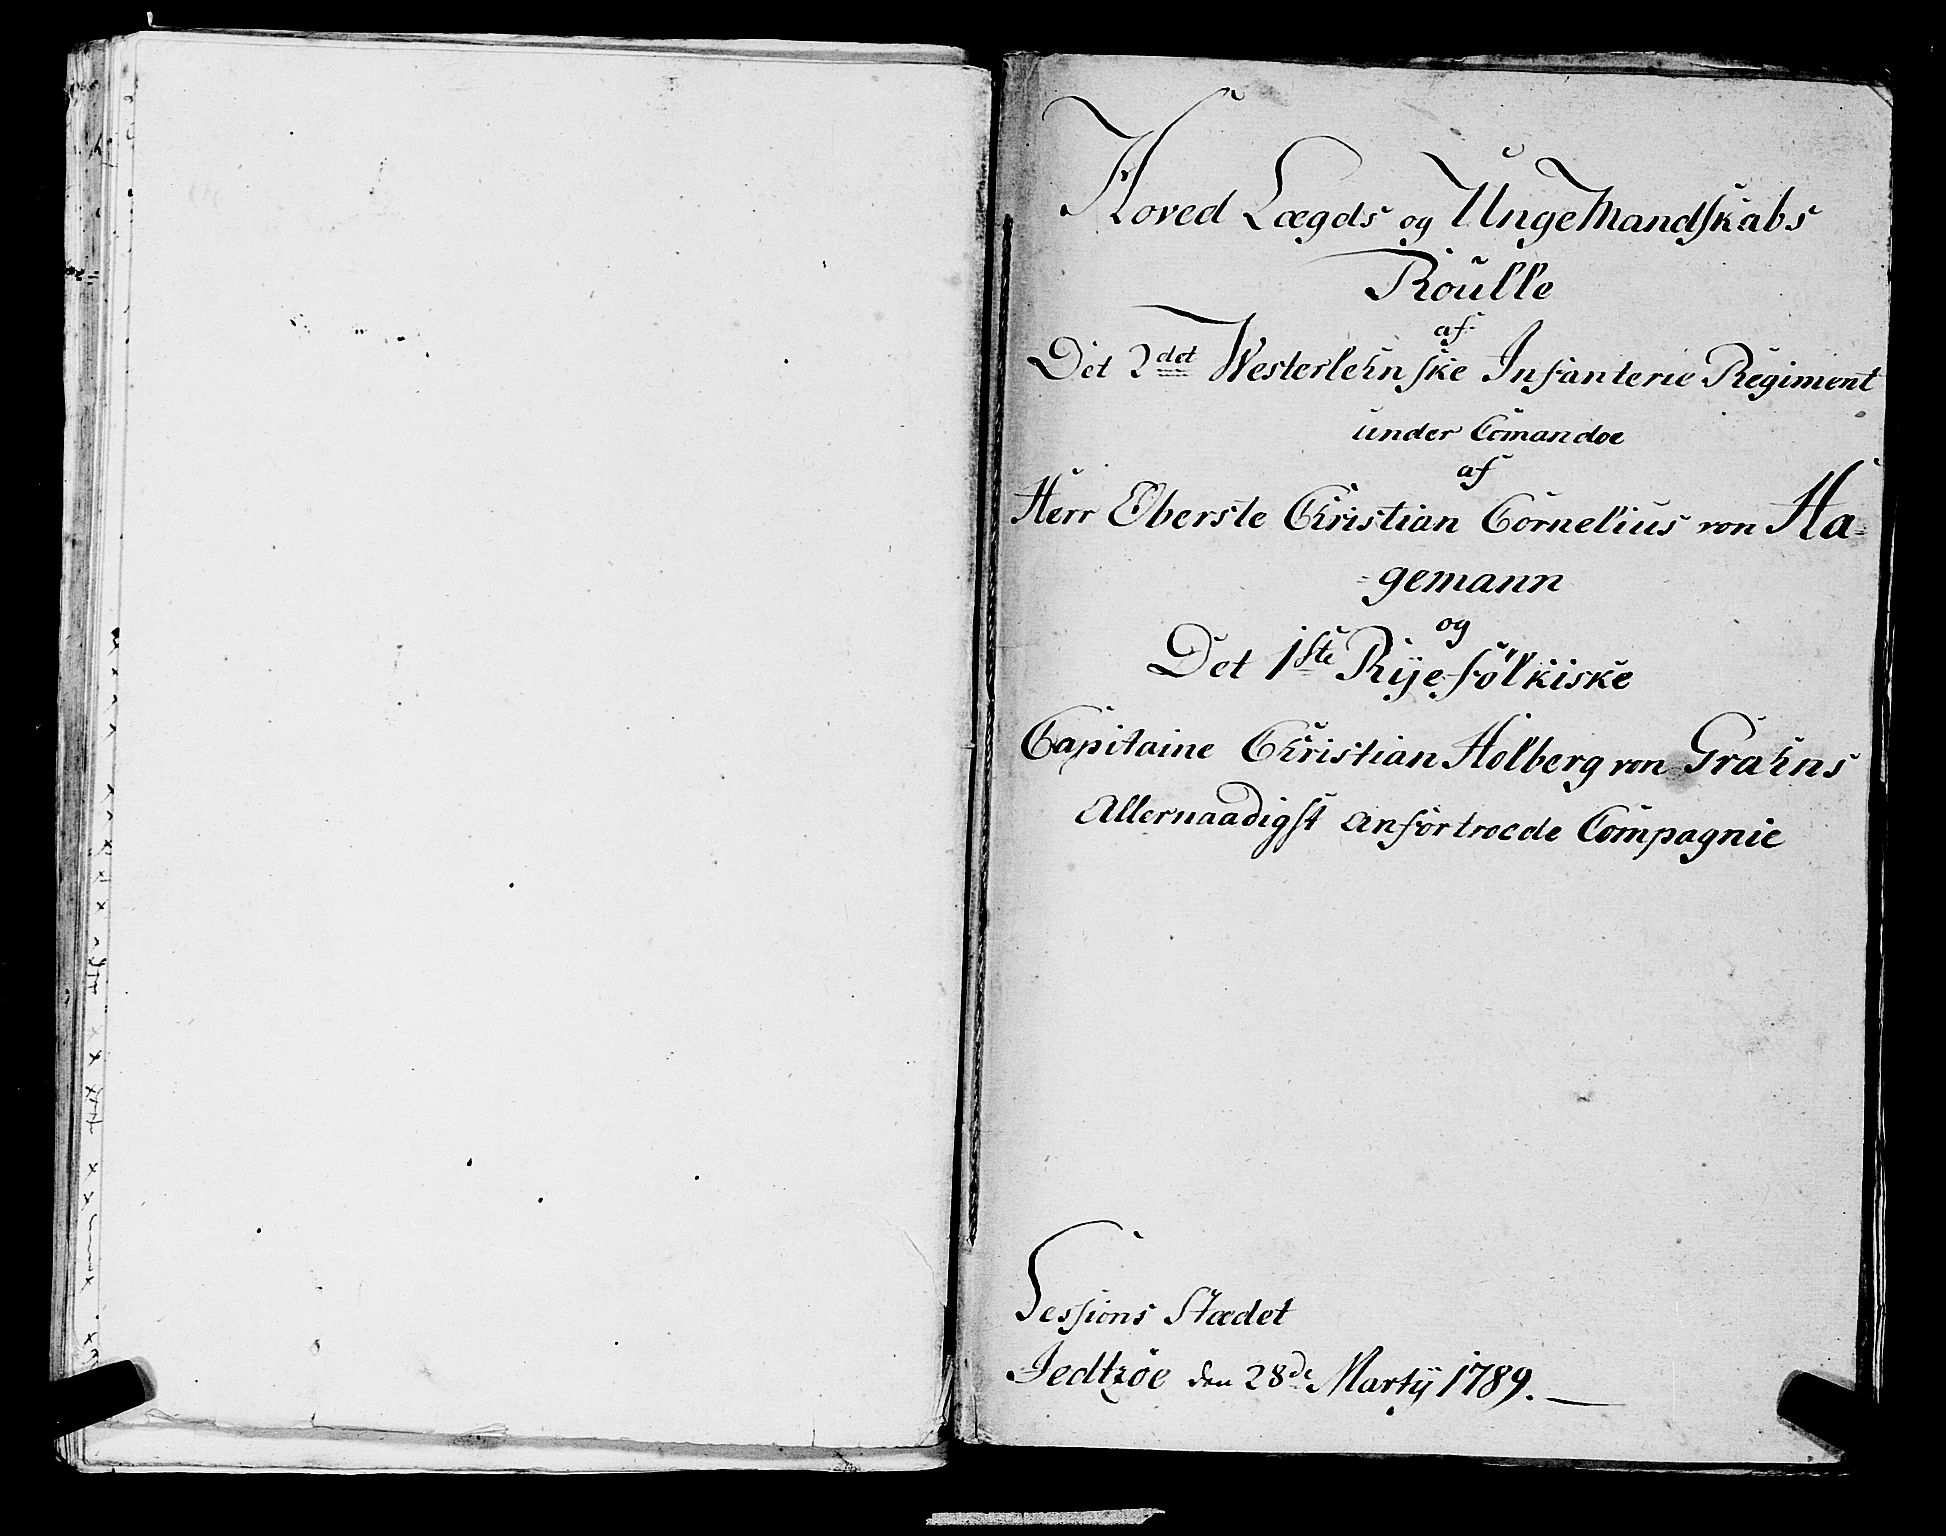 Hoved Lægds og Unge Mandskabs
Roulle
af
Det 2det Westerlehnske Infanterie Regiment
under Comandoe
af
Herr Oberste Christian Cornelius von Ha-
-gemann
og
Det 1ste Ryefölkiske
Capitaine Christian Holberg von Grahns
Allernaadigst anfortroede Compagnie
Sessions Stædet
Jedtzöe den 28de Martÿ 1789.